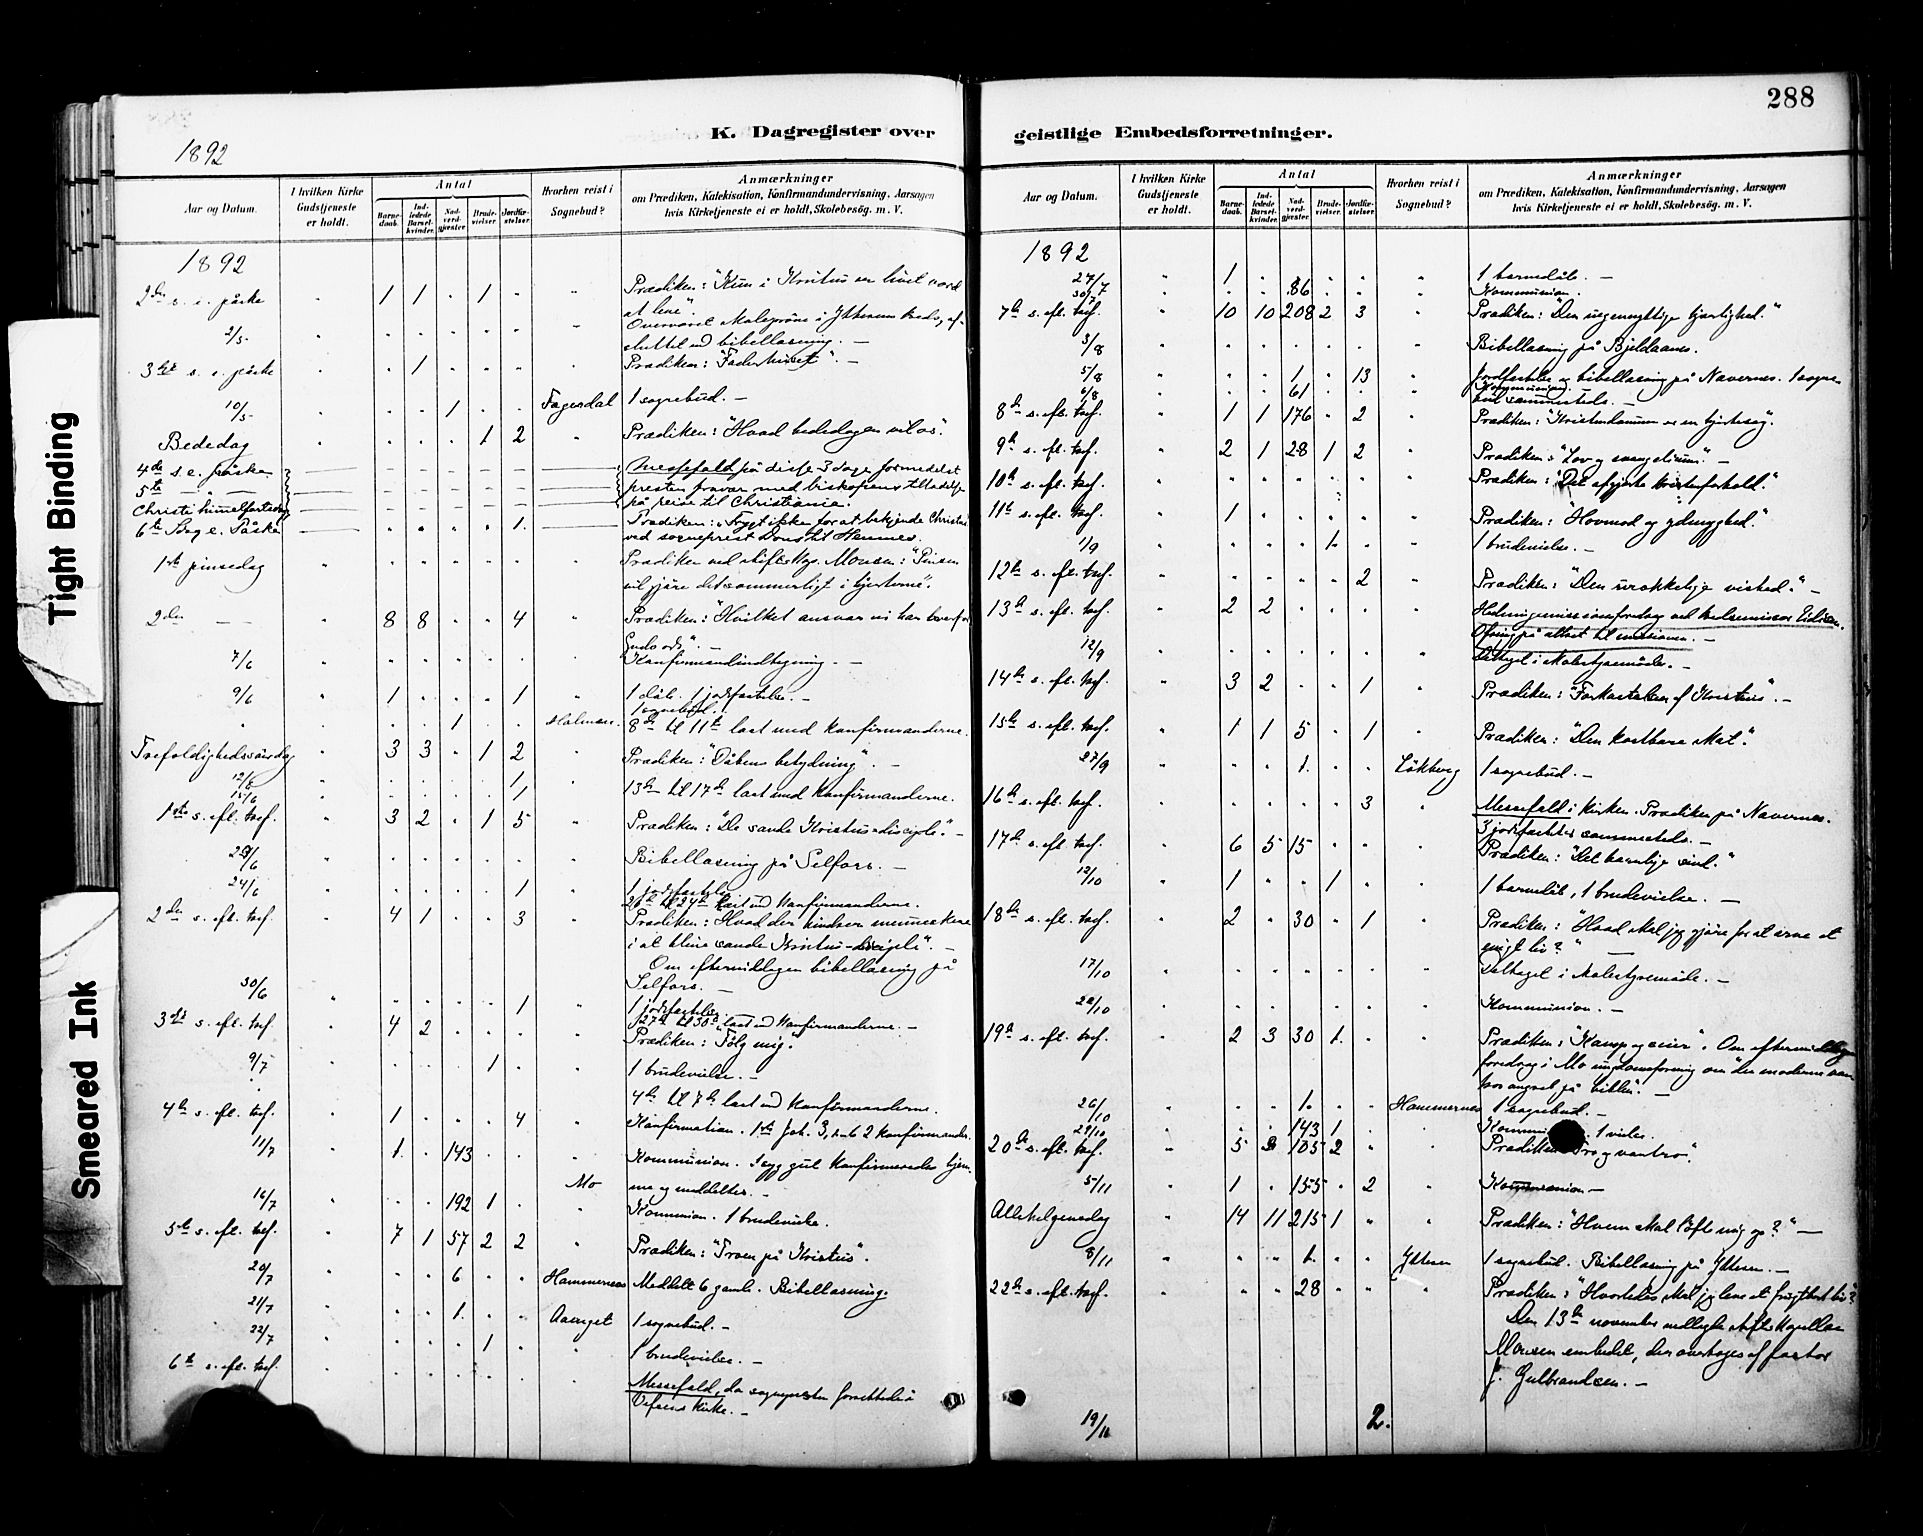 288
K. Dagregister over geistlige Embedsforretninger.
1892
Aar og Datum.
I hvilken Kirke Gudstjeneste er holdt.
Antal
Barnedaab.
Indledede Barselkvinder.
Nadverdgjæster.
Brudevielser.
Jordfæstelser.
Hvorhen reist i Sognebud?
Anmærkninger
om Prædiken, Katekisation, Konfirmandundervisning, Aarsagen
hvis Kirketjeneste ei er holdt, Skolebesøg. m. V.
1892
2den s. e. påske " 1 1 . 1 . " Prædiken: "Kun i Kristus er livet værd
at leve".
2/5 Overværet skoleprøve i Ytteren kreds, af-
sluttet med bibellæsning. —
3die s. e. påske . 1 Prædiken: "Faderhuset". —
10/5 1 Fagerdal 1 sognebud. —
Bededag 1 2 Prædiken: "Hvad bededagen vil os".
4de s. e. påske Messefald på disse 3 dage formedelst
5te — — prestens fravær med biskopens tilladelse
Christi himmelfartsdag på reise til Christiania.
6te Søg e. Påske 1. Prædiken: "Frygt ikke for at bekjende Christus"
ved sogneprest Dons til Hemnes.
1ste pinsedag Prædiken ved stiftskap. Monsen: "Pinsen
vil gjøre det sommerligt i hjerterne".
2den — — 8 8 . . 4 Prædiken: "Hvilket ansvar vi har overfor
Guds ord". —
7/6 Konfirmandindtegning. —
9/6 1 . . . 1 1 dåb. 1 jordfæstelse. —
1 sognebud.
1 8de til 11te læst med konfirmanderne.
Trefoldighedssøndag 3 3 . 1 2 Prædiken: "Dåbens betydning". —
12/6 1
15/6 1 13de til 17de læst med konfirmanderne.
1ste s. eft. tref. 3 2 . 1 5 Prædiken: "De sande Kristus-disciple". —
Bibellæsning på Selfors. —
24/6 1 1 jordfæstelse
til 24de læst med konfirmanderne.
2den s. eft. tref. 4 1 . . 3 Prædiken: Hvad der hindrer menneskene
i at blive sande Kristus-disciple". —
Om eftermiddagen bibellæsning på
Selfors. —
30/6 1 1 jordfæstelse
27de til 30te læst med konfirmanderne. —
3die s. eft. tref. 4 2 Prædiken: "Følg mig."
9/7 1 1 brudevielse. —
4de til 7de læst med konfirmanderne.
4de s. eft. tref. 1 . . . 4 Konfirmation. 1ste Joh. 3, 1-6 2 konfirmander.
11/7 1. . 143 Kommunion. 1 syg gut konfirmeredes hjem-
Mo me og meddeltes. —
16/7 192 1 Kommunion. 1 brudevielse.
5te s. eft. tref. 7 1 57 2 2 Prædiken: "Troen på Kristus".
20/7 6 Hammernes Meddelt 6 gamle. Bibellæsning.
21/7 1. 1 sognebud. —
22/7 1 1 brudevielse. —
6te s. eft. tref. Messefald, da sognepresten forrettede i
Vefsens kirke. —
Aar og Datum.
I hvilken Kirke Gudstjeneste er holdt.
Antal
Barnedaab.
Indledede Barselkvinder.
Nadverdgjæster.
Brudevielser.
Jordfæstelser.
Hvorhen reist i Sognebud?
Anmærkninger
om Prædiken, Katekisation, Konfirmandundervisning, Aarsagen
hvis Kirketjeneste ei er holdt, Skolebesøg. m. V.
1892
27/7 1 1 barnedåb. —
30/7 86 Kommunion.
7de s. eft. tref. 10 10 208 2 3 Prædiken: "Den uegennyttige kjærlighed."
3/8 Bibellæsning på Bjeldaanes.
5/8 1 . 13 Jordfæstelse og bibellæsning på Navernes. 1 sogne-
bud sammesteds. —
6/8 61 Kommunion.
8de s. eft. tref. 1 1 176 . 2 Prædiken: "Kristendommen er en hjertesag".
9de s. eft. tref. 2 1 28 1 2 Prædiken: "Lov og evangelium". —
10de s. eft. tref. Prædiken: "Det afgjorte kristenforhold."
11te s. eft. tref. 1 Prædiken: "Hovmod og ydmyghed."
1/9 1. 1 brudevielse. —
12te s. eft. tref. 2 Prædiken: "Den urokkelige vished." —
13de s. eft. tref. 2 2 Hedningemissionsforedrag ved
Ofring på altret til missionen. —
12/9 Deltaget i skolestyremøde. —
14de s. eft. tref. 3 2 . . 1 Prædiken: "Forkastelsen af Kristus". —
15de s. eft. tref. 1 1 5 . 1 Prædiken: "Den kostbare skat".
27/9 1. Løkberg 1 sognebud. —
16de s. eft. tref. 3 Messefald i kirken. Prædiken på Navernes.
3 jordfæstelser sammesteds. —
17de s. eft. tref. 6 5 15 Prædiken: "Det barnlige sind."
12/10 1 . . 1 1 barnedåb, 1 brudevielse. —
18de s. eft. tref. 2 . 30 . 1 Prædiken: "Hvad skal jeg gjøre for at arve et
evigt liv?" —
17/10 Deltaget i skolestyremøde. —
22/10 Kommunion. —
19de s. eft. tref. 2 3 30 1. Prædiken: "Kamp og seier". Om eftermiddagen
foredrag i Mo ungdomsforening om "den moderne van-
tros angreb på bibelen". —
26/10 1. Hammernes 1 sognebud. —
29/10 143 1 1 vielse.
20de s. eft. tref. 5 105 2 Prædiken: "Tro og vantro".
5/11 1 . 155 . 2 Kommunion —
Allehelgensdag 14 11 215 1 Prædiken: "Hvem skal løfte mig op?" —
8/11 1. Ytteren 1 sognebud. Bibellæsning på Ytteren. —
22de s. eft. tref. 28 Prædiken: "Hvorledes skal jeg leve et frugtbart liv?"
Den 13de november nedlagde stiftskapellan
Monsen embedet, der overtoges af pastor
J. Gulbrandsen. —
19/11 2.
Tight Binding
Smeared Ink